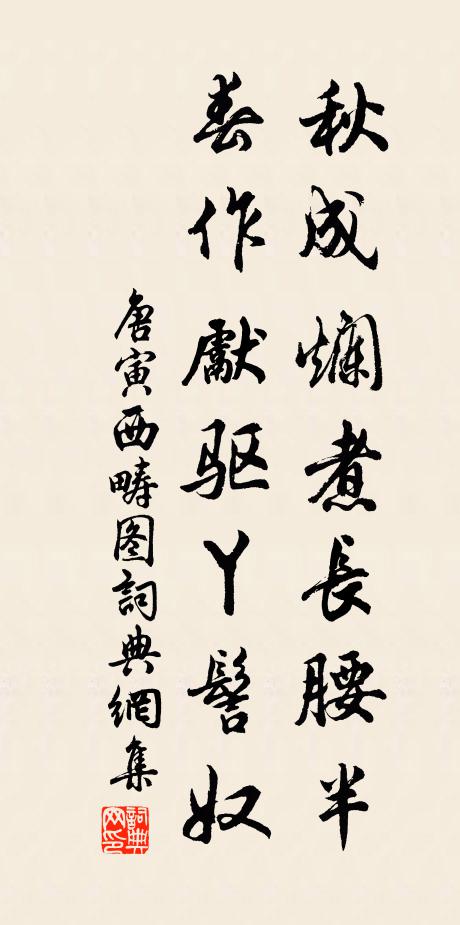 秋成爛煮長腰半
春作獻驱丫髻奴
唐寅西畴图詞典網集
詞典网印